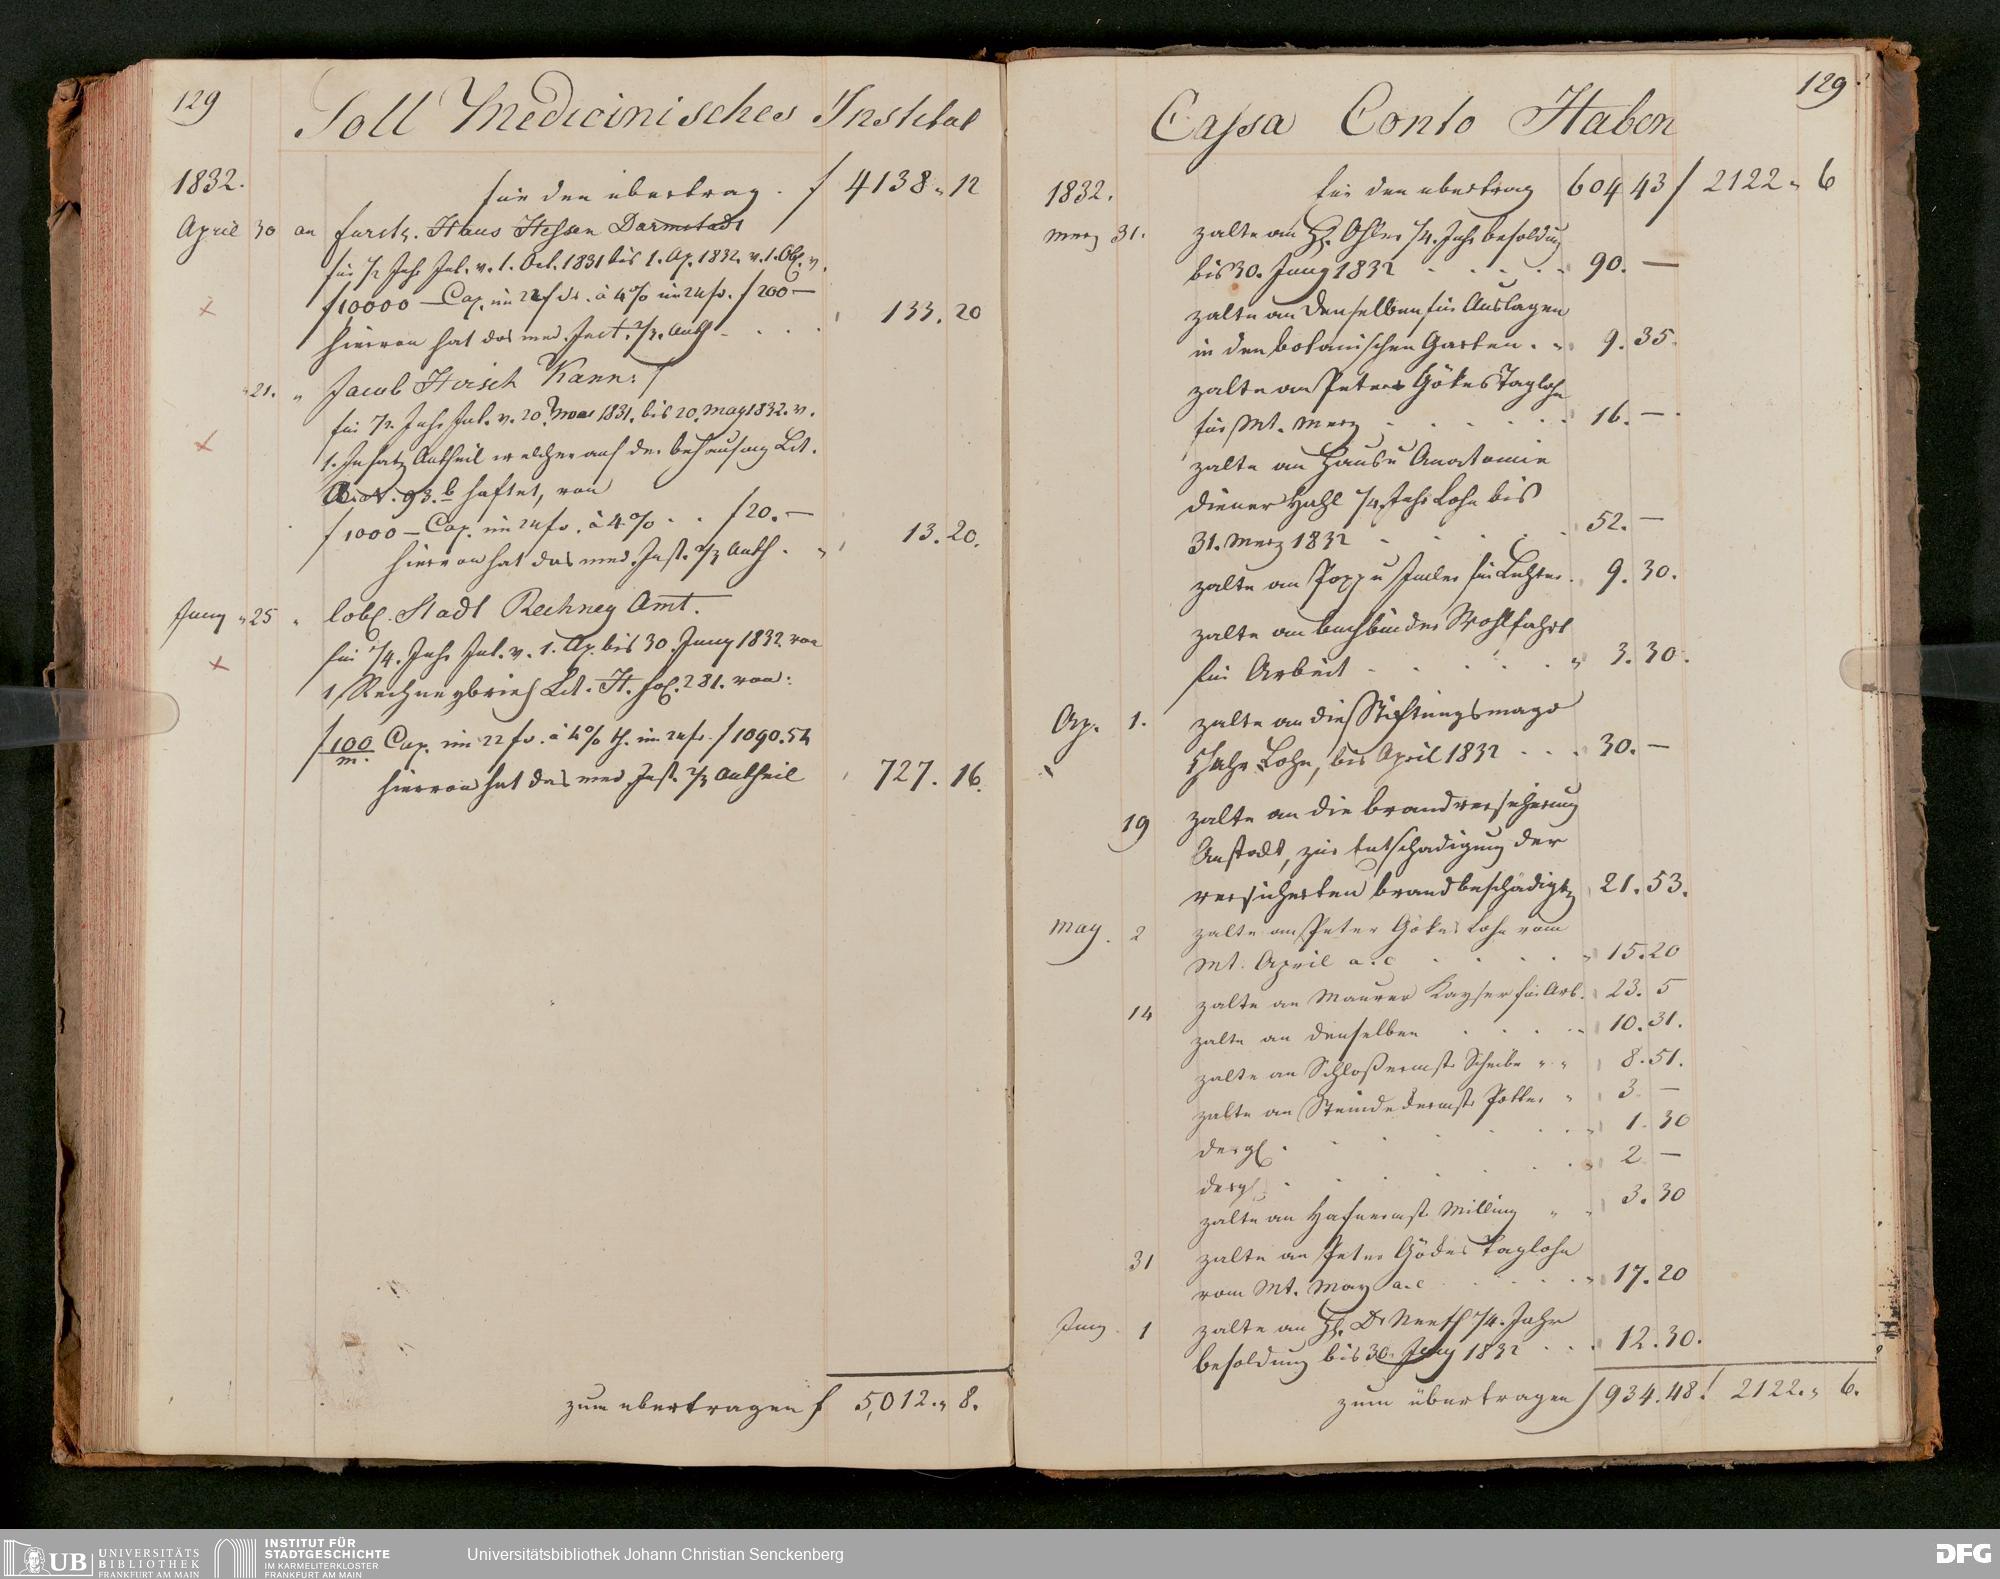 129
Soll Medicinisches Institut
1832.
für den übertrag . f 4138 " 12
April 30 an fürstl. Haus Hessen Darmstadt
für 1/2 Jahr Int. v. 1. Oct. 1831 bis 1. Ap. 1832. v. 1. Obl. v.
f 10000 — Cap. im 24 f . à 4% im 24 f. f 200 —
hiervon hat das med. Inst. 2/3 Anth. - . . . 133. 20
21. " Jacob Hirsch Kann:
für 1/2 Jahr Int. v. 20. 1831. bis 20. May 1832. v.
1. Insatz Antheil welcher auf der behausung Lit.
93. b haftet, von
f 1000 — Cap. im 24 f. à 4% . . f 20. —
hiervon hat das med. Inst. 2/3 Anth. . " 13. 20.
Juny " 25 " löbl. Stadt Rechney Amt.
für 1/4. Jahr Int. v. 1. Ap. bis 30. Juny 1832. von
1 Rechneybrief Lit. H. fol. 281. von:
f 100/m. Cap. im 22 f. à 4% th. im 24 f. f 1090. 54
hiervon hat das med. Inst. 2/3 Antheil 727. 16.
zum übertragen f 5,012. " 8.
129
Cassa Conto Haben
1832.
für den übertrag 604 43 f 2122 " 6
Merz 31. zalte an H. Ohler 1/4. Jahr besoldung
bis 30. Juny 1832 . . . . . 90. —
zalte an denselben für Auslagen
in den botanischen Garten . " 9. 35.
zalte an Peter Gökes Taglohn
für Mt. Merz . . . . . 16. —
zalte an Haus u Anatomie
diener Hahl 1/4. Jahr Lohn bis
31. Merz 1832 . . . . . 52. —
zalte an Popp u für . 9. 30.
zalte an buchbinder Wohlfahrt
für Arbeit . . . . . " 3. 30.
Ap. 1. zalte an die Stiftungsmagd
1 Jahr Lohn, bis April 1832 . . . 30. —
19 zalte an die brandversicherung
Anstalt, zur Entschädigung der
versicherten brandbeschädigten 21. 53.
May. 2 zalte an Peter Gökes Lohn vom
Mt. April a. c . . . . " 15. 20
14 zalte an Maurer Kayser für Arb. 23. 5
zalte an denselben . . . . " 10. 31.
zalte an Schlossermstr Scheibe " " 8. 51.
zalte an Steindeckermstr " 3 —
dergl. . . . . . . " 1. 30
dergl. . . . . . . " 2 —
zalte an Hafnermstr Milling " " 3. 30
31 zalte an Peter Gökes Taglohn
vom Mt. May a. c . . . . " 17. 20
Juny 1 zalte an H. Dr Neeff 1/4. Jahr
besoldung bis 30. Juny 1832 . . . 12. 30.
zum übertragen f 934. 48. f 2122. " 6.
UB UNIVERSITÄTS
BIBLIOTHEK
FRANKFURT AM MAIN
INSTITUT FÜR
STADTGESCHICHTE
IM KARMELITERKLOSTER
FRANKFURT AM MAIN
Universitätsbibliothek Johann Christian Senckenberg
DFG